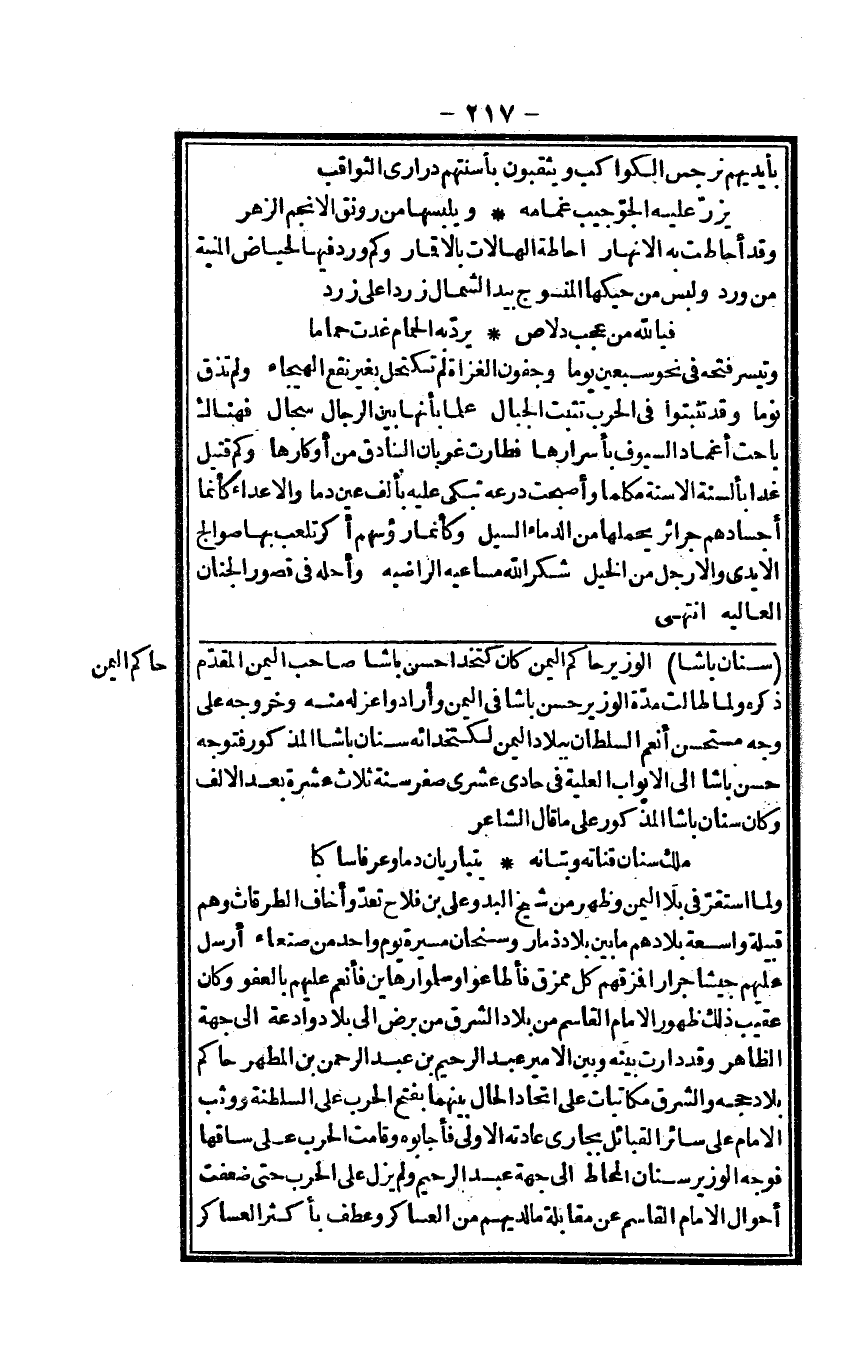 - ٢١٧ -
بأيديهم نرجس الكواكب ويثقبون بأسنتهم درارى الثواقب
يزرّ عليه الجوّ جيب غمامه * ويلبسها من رونق الانجم الزهر
وقد أحاطت به الانهار احاطة الهالات بالاقمار وكم ورد فيها لحياض المنية
من ورد ولبس من حبكها المنسوج بيد الشمال زردا على زرد
فيالله من عجب دلاص * يردّ به الحمام غدت حماما
وتيسر فتحه فى نحو سبعين يوما وجفون الغزاة لم تكتحل بغير نقع الهيجاء ولم تذق
نوما وقد تثبتوا فى الحرب تثبت الجبال علما بأنها بين الرجال سجال فهنالك
باحت أغماد السيوف بأسرارها فطارت غربان البنادق من أوكارها وكم قتيل
غدا بألسنة الاسنة مكلما وأصبحت درعه تبكى عليه بألف عين دما والاعداء كأنما
أجسادهم جرائر يحملها من الدماء السيل وكأنما رؤسهم أكر تلعب بها صوالج
الايدى والارجل من الخيل شكر الله مساعيه الراضيه وأحله فى قصور الجنان
العاليه انتهى
(سنان باشا) الوزير حاكم اليمن كان كتخدا حسن باشا صاحب اليمن المقدّم
حاكم اليمن
ذكره ولما طالت مدّة الوزير حسن باشا فى اليمن وأرادوا عزله منه وخروجه على
وجه مستحسن أنعم السلطان ببلاد اليمن لكتخدائه سنان باشا المذكور فتوجه
حسن باشا الى الابواب العلية فى حادى عشرى صفر سنة ثلاث عشرة بعد الالف
وكان سنان باشا المذكور على ما قال الشاعر
ملك سنان قناته وبنانه * يتباريان دما وعرفا ساكبا
ولما استقرّ فى بلاد اليمن وظهر من شيخ البدو على بن فلاح تعدّ وأخاف الطرقات وهم
قبيلة واسعة بلادهم ما بين بلاد ذمار وسنحان مسيرة يوم واحد من صنعاء أرسل
عليهم جيشا جرارا فمزقهم كل ممزق فأطاعوا وسلموا رهاين فأنعم عليهم بالعفو وكان
عقيب ذلك ظهور الامام القاسم من بلاد الشرق من برض الى بلاد وادعة الى جهة
الظاهر وقد دارت بينه وبين الامير عبد الرحيم بن عبد الرحمن بن المطهر حاكم
بلاد حجه والشرق مكاتبات على اتحاد الحال بينهما بفتح الحرب على السلطنة ووثب
الامام على سائر القبائل بجارى عادته الاولى فأجابوه وقامت الحرب على ساقها
فوجه الوزير سنان المحاط الى جهة عبد الرحيم ولم يزل على الحرب حتى ضعفت
أحوال الامام القاسم عن مقابلة مالديهم من العساكر وعطف بأكثر العساكر